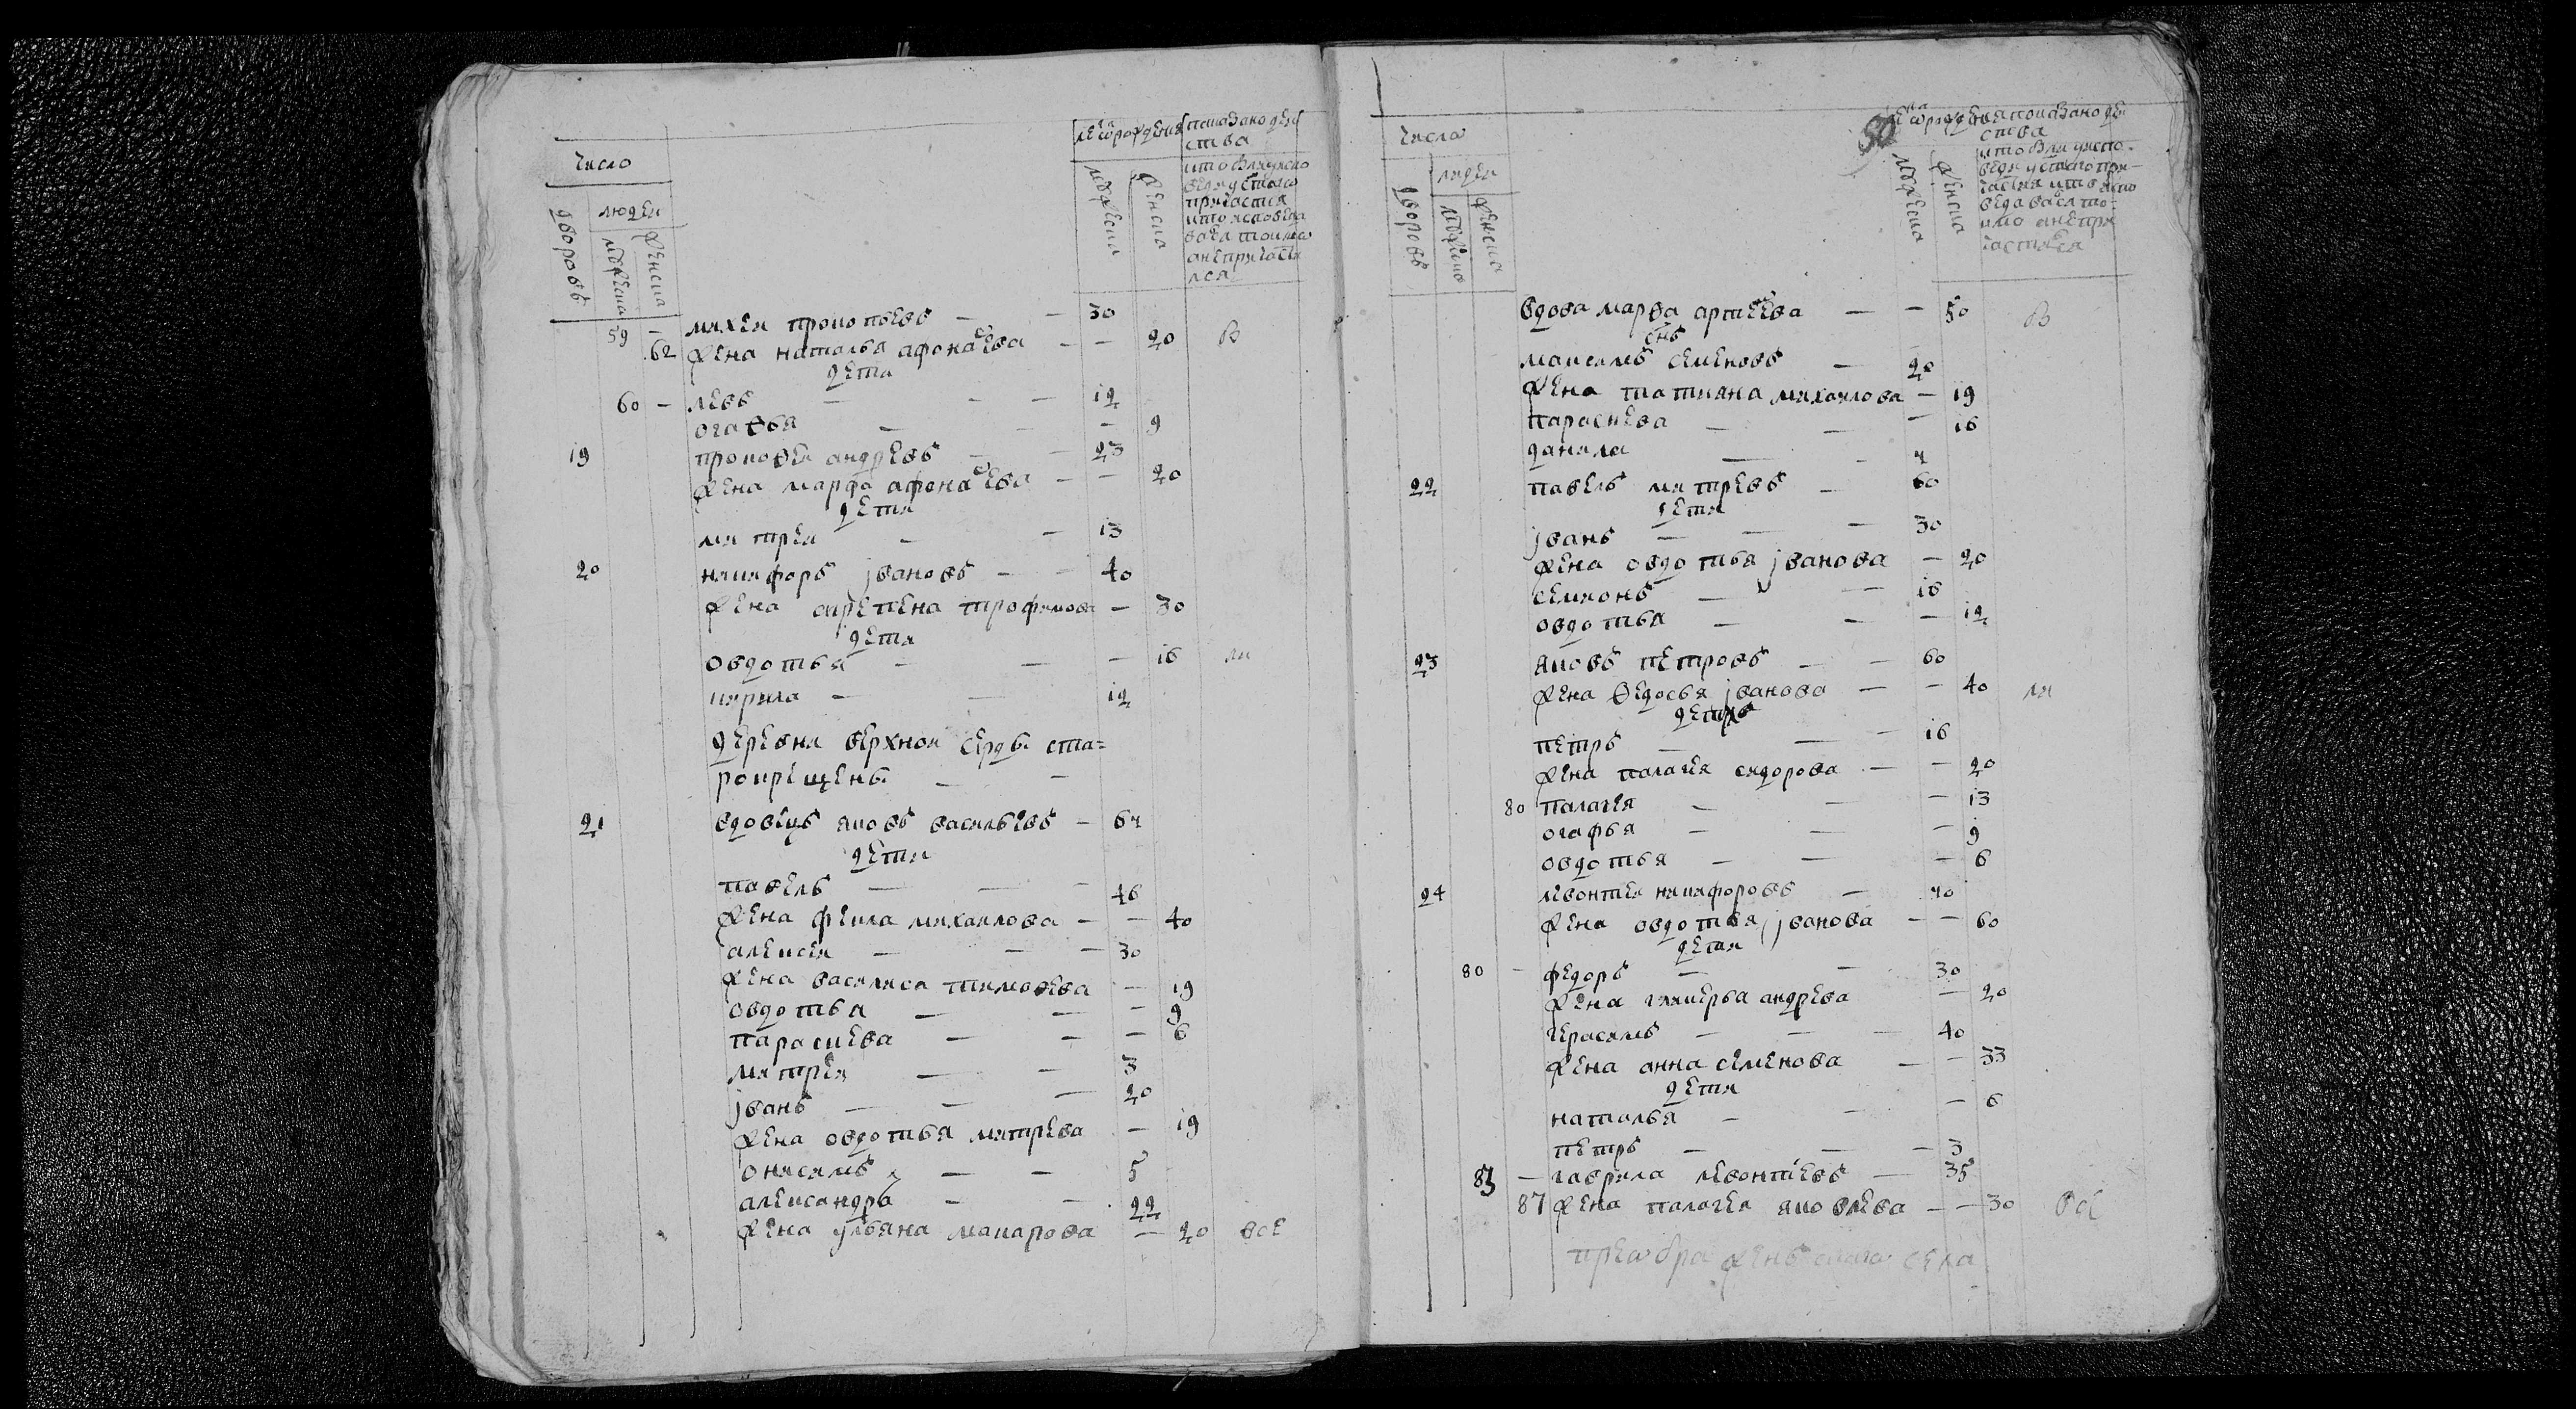 число
дворовъ
людеи
мужеска
женска
лета от рождения
мужеска
женска
показано деи
ства
кто былъ у испо
веди у святаго
причастия
кто исповеда
вался токмо
а не причасти
лся
59 – михеи прокопьевъ – – 30
62 жена наталья афонасева – – 20 в
дети
60 – левъ – – – 12
огафья – – – 9
19 прокофеи андревъ – – 23
жена марфа афонасева – – 20
дети
митреи – – 13
20 никифоръ јвановъ – – 40
жена агрепена трофимова – 30
дети
овдотья – – – 16 ли
кирила – – 12
деревня верхней серды ста=
рокрещены – –
21 вдовецъ яковъ васильевъ – 67
дети
павелъ – – – 46
жена фекла михаилова – – 40
алексеи – – – 30
жена василиса тимофева – 19
овдотья – – – 9
параскева – – – 6
митреи – – 3
јванъ – – – 20
жена овдотья митрева – 19
онисимъ – – 5
александръ – – 22
жена ульяна макарова – 20 все
число
дворовъ
людеи
мужеска
женска
50
лета от рождения
мужеска
женска
показано деи
ства
кто былъ у испо-
веди у святаго при-
частия кто испо
ведавался то-
кмо а не при
частился
вдова марфа артемева – – 50 в
сынъ
максимъ семеновъ – 20
жена татияна михаилова – 19
параскева – – – 16
данила – – 7
22 павелъ митревъ – 60
дети
јванъ – – – 30
жена овдотья јванова – 20
семионъ – – 16
овдотья – – – 12
23 яковъ петровъ – – 60
жена федосья јванова – – 40 ли
дети
петръ – – – 16
жена палагея сидорова – – 20
80 палагея – – – 13
огафья – – – 9
овдотья – – – 6
24 левонтеи никифоровъ – 70
жена овдотья јванова – – 60
дети
80 – федоръ – – 30
жена гликерья андрева – 20
герасимъ – – – 40
жена анна семенова – – 33
дети
наталья – – – 6
петръ – – – 3
83 – гаврила левонтевъ – 35
87 жена палагея яковлева – – 30 все
преображенъскаго села